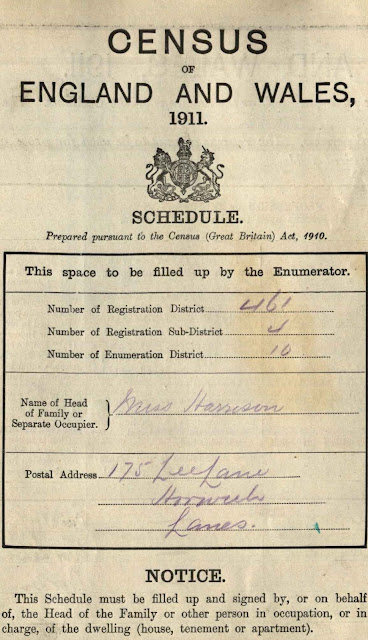 CENSUS
OF
ENGLAND AND WALES,
1911.
SCHEDULE.
Prepared pursuant to the Census (Great Britain) Act, 1910.
This space to be filled up by the Enumerator.
Number of Registration District 461
Number of Registration Sub-District 4
Number of Enumeration District 10
Name of Head
of Family or
Separate Occupier.
Miss Harrison
Postal Address 175 Lee Lane
Horwich
Lancs.
NOTICE.
This Schedule must be filled up and signed by, or on behalf
of, the Head of the Family or other person in occupation, or in
charge, of the dwelling (house, tenement or apartment).